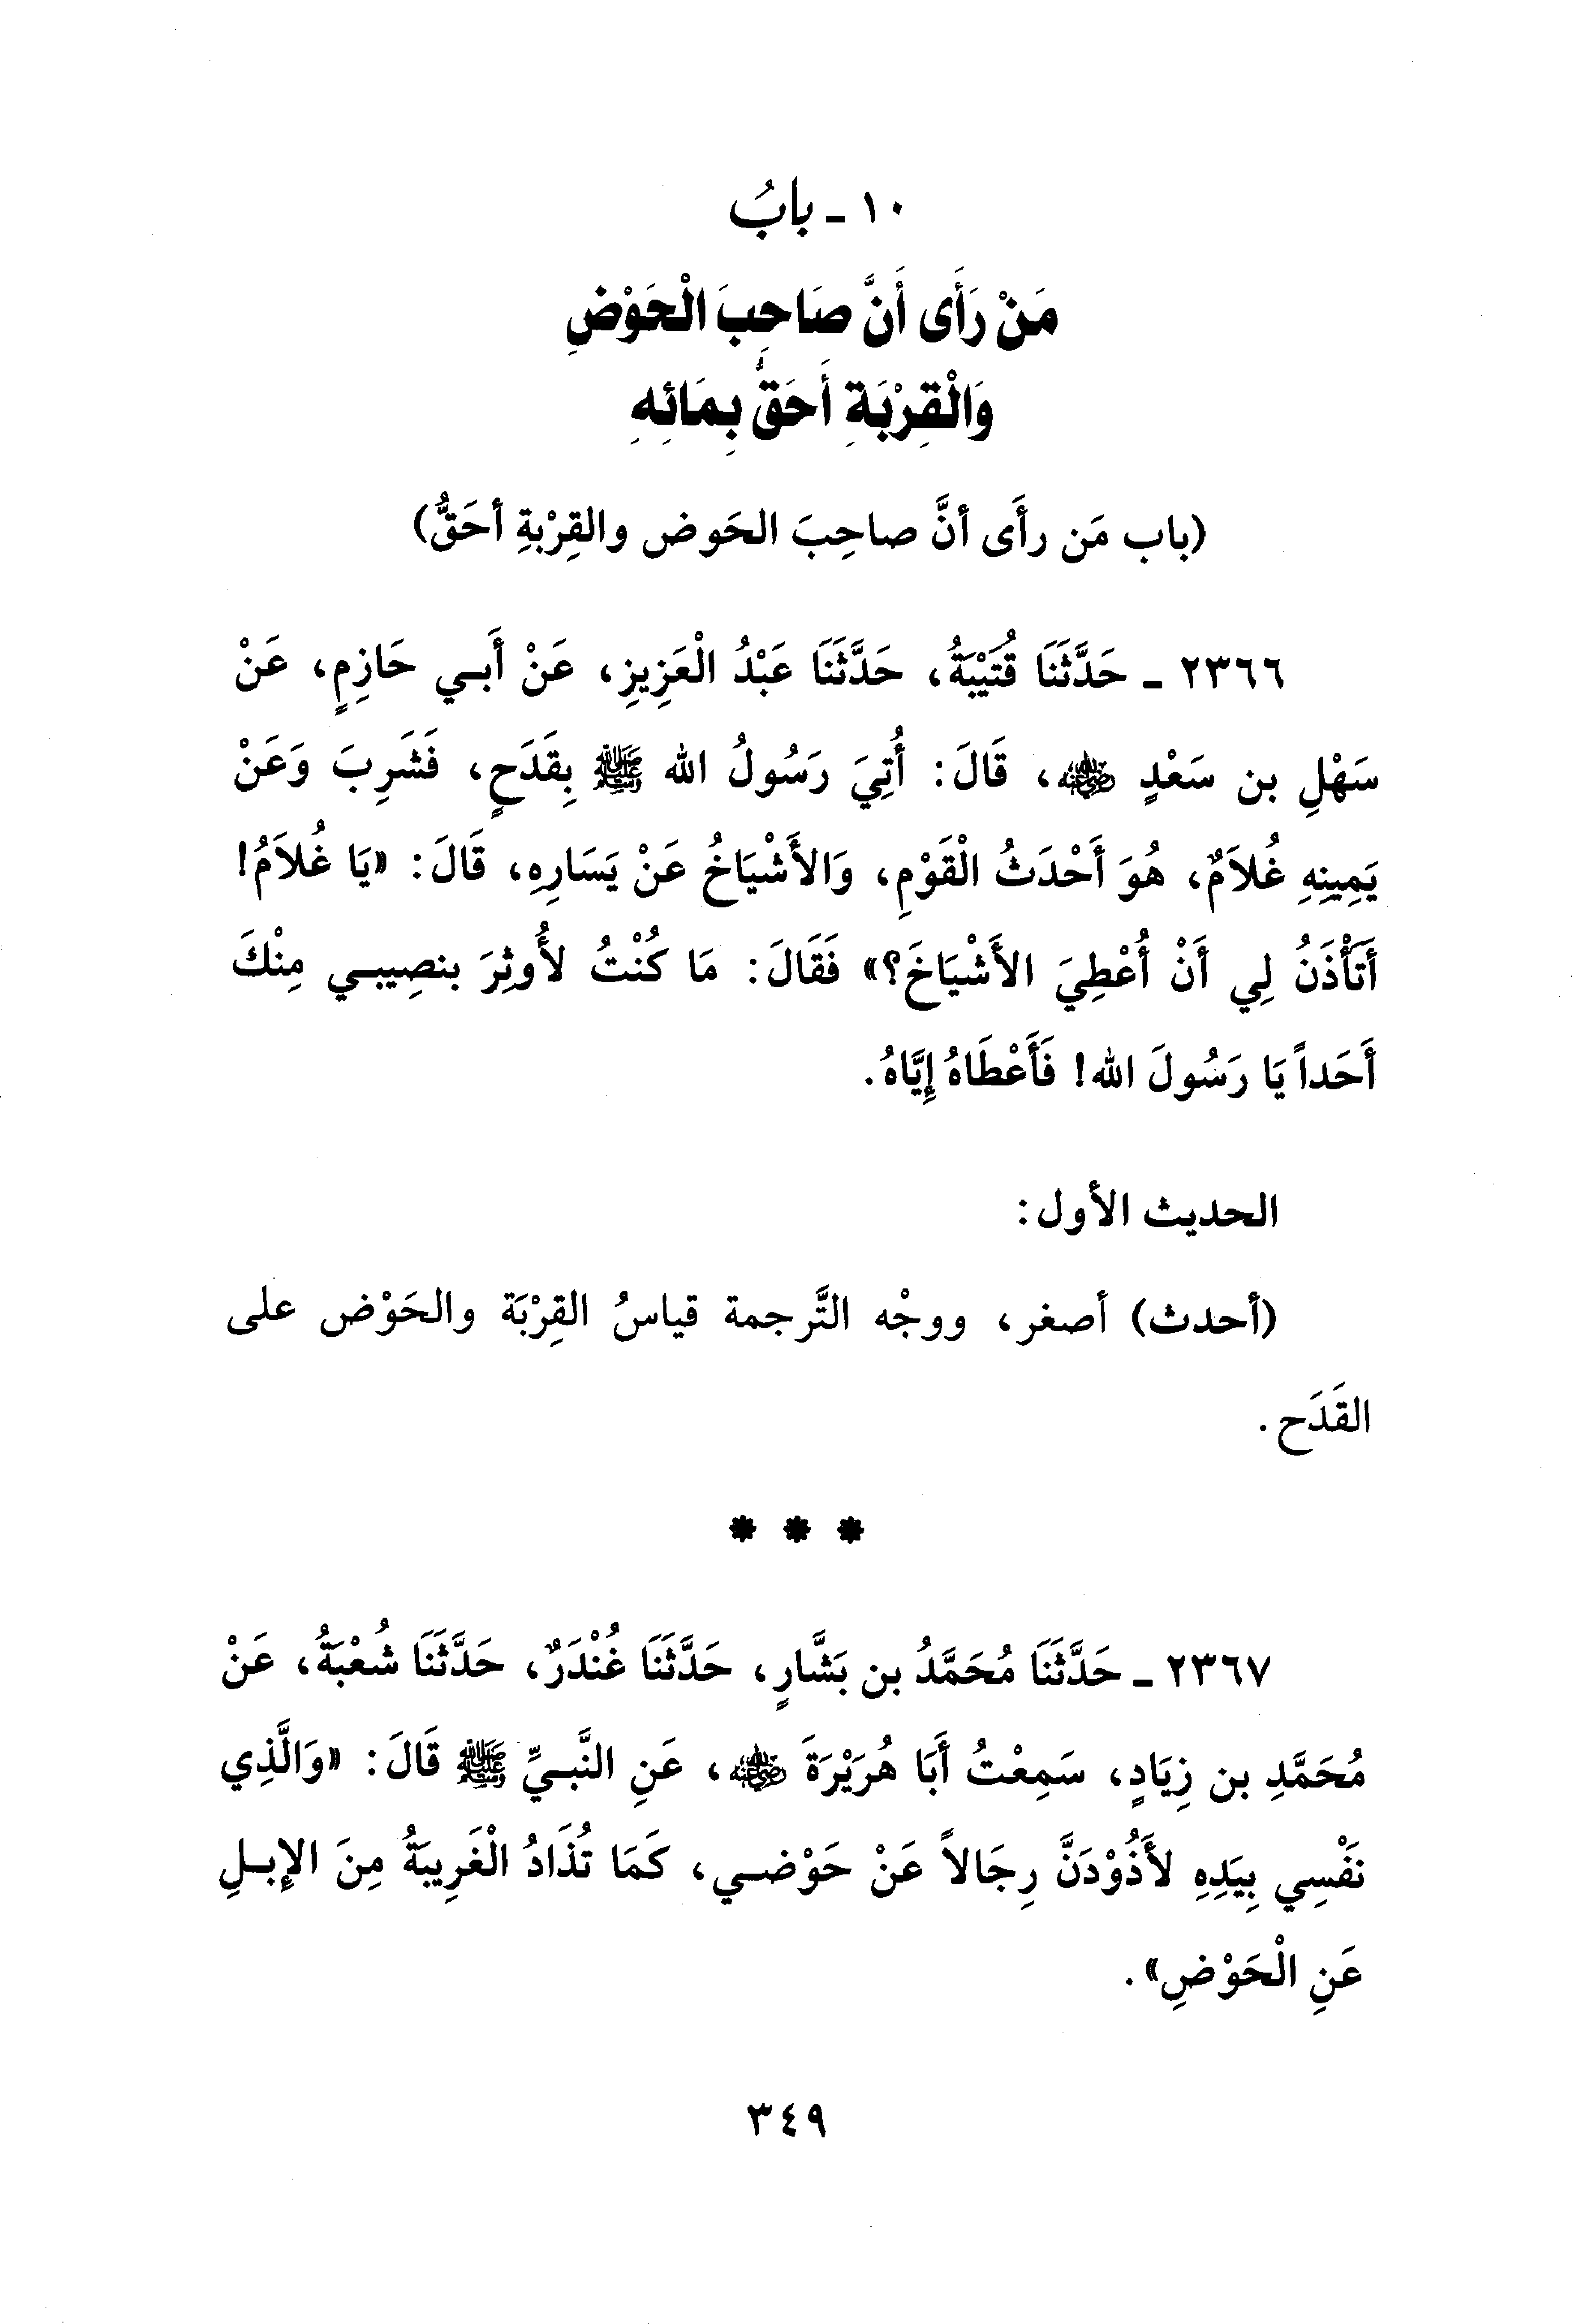 ١٠ - بابُ
مَنْ رَأَى أَنَّ صَاحِبَ الْحَوْضِ
وَالْقِرْبَةِ أَحَقُّ بِمَائِهِ
(باب مَن رأَى أنَّ صاحِبَ الحَوض والقِرْبةِ أحَقُّ)
٢٣٦٦ - حَدَّثَنَا قُتَيْبَةُ، حَدَّثَنَا عَبْدُ الْعَزِيزِ، عَنْ أَبي حَازِمٍ، عَنْ
سَهْلِ بن سَعْدٍ ﵁، قَالَ: أُتِيَ رَسُولُ الله ﷺ بِقَدَحٍ، فَشَرِبَ وَعَنْ
يَمِينِهِ غُلاَمٌ، هُوَ أَحْدَثُ الْقَوْمِ، وَالأَشْيَاخُ عَنْ يَسَارِهِ، قَالَ: «يَا غُلاَمُ!
أَتَأْذَنُ لِي أَنْ أُعْطِيَ الأَشْيَاخَ؟» فَقَالَ: مَا كُنْتُ لأُوثِرَ بنصِيبي مِنْكَ
أَحَداً يَا رَسُولَ الله! فَأَعْطَاهُ إِيَّاهُ.
الحديث الأول:
(أحدث) أصغر، ووجْه التَّرجمة قياسُ القِرْبَة والحَوْض على
القَدَح.
* * *
٢٣٦٧ - حَدَّثَنَا مُحَمَّدُ بن بَشَّارٍ، حَدَّثَنَا غُنْدَرٌ، حَدَّثَنَا شُعْبَةُ، عَنْ
مُحَمَّدِ بن زِيَادٍ، سَمِعْتُ أَبَا هُرَيْرَةَ ﵁، عَنِ النَّبيِّ ﷺ قَالَ: «وَالَّذِي
نَفْسِي بِيَدِهِ لأَذُوْدَنَّ رِجَالاً عَنْ حَوْضي، كَمَا تُذَادُ الْغَرِيبَةُ مِنَ الإِبلِ
عَنِ الْحَوْضِ».
٣٤٩